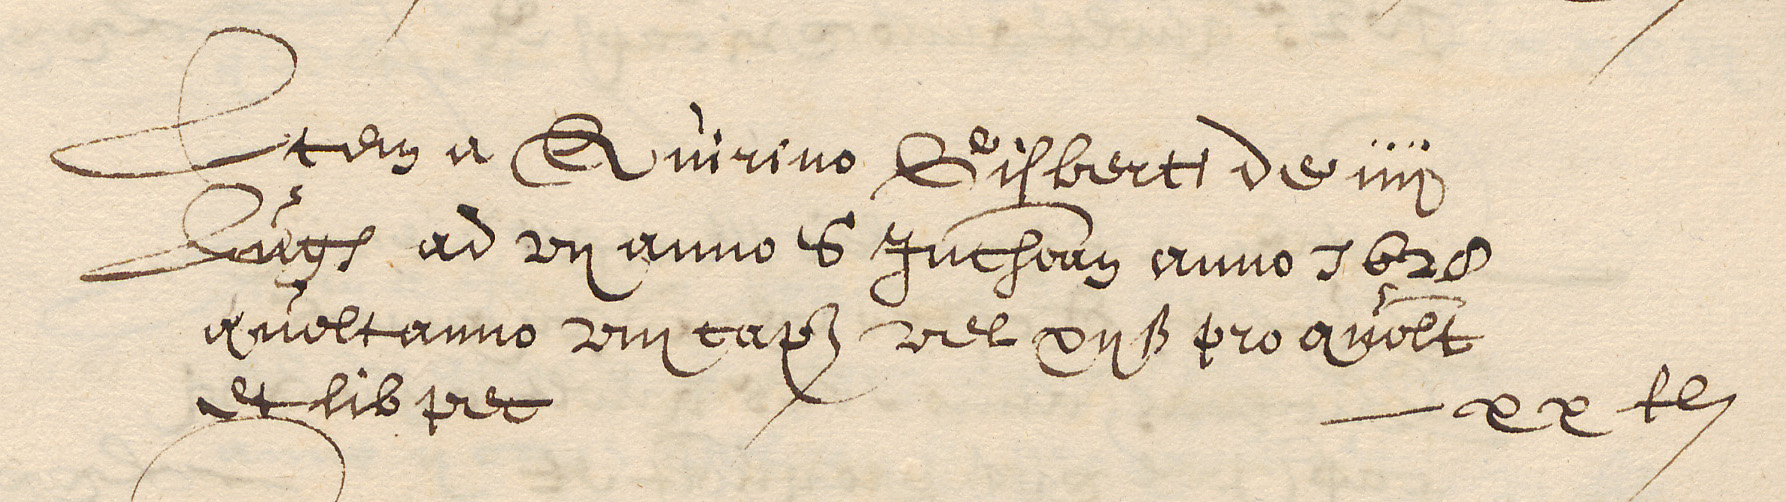 Item a Quirino Geisberti de iiij
Jugs ad vij anno S Inchoan anno 1628
quolt anno viij cap vel xijß pro quolt
et lib pet xx fl